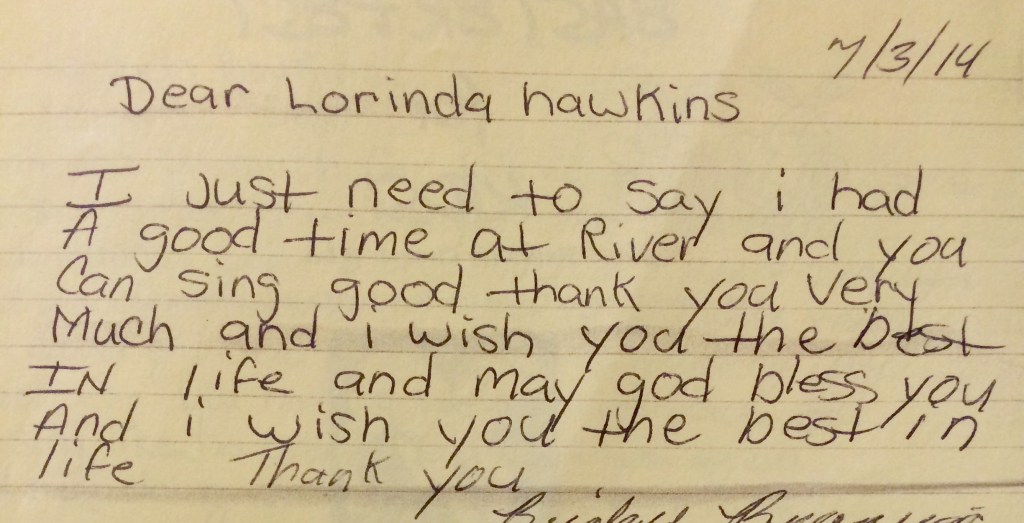 7/3/14
Dear Lorinda hawkins
I just need to say i had
A good time at River and you
Can sing good thank you Very
Much and i wish you the best
IN life and may god bless you
And i wish you the best in
life Thank you